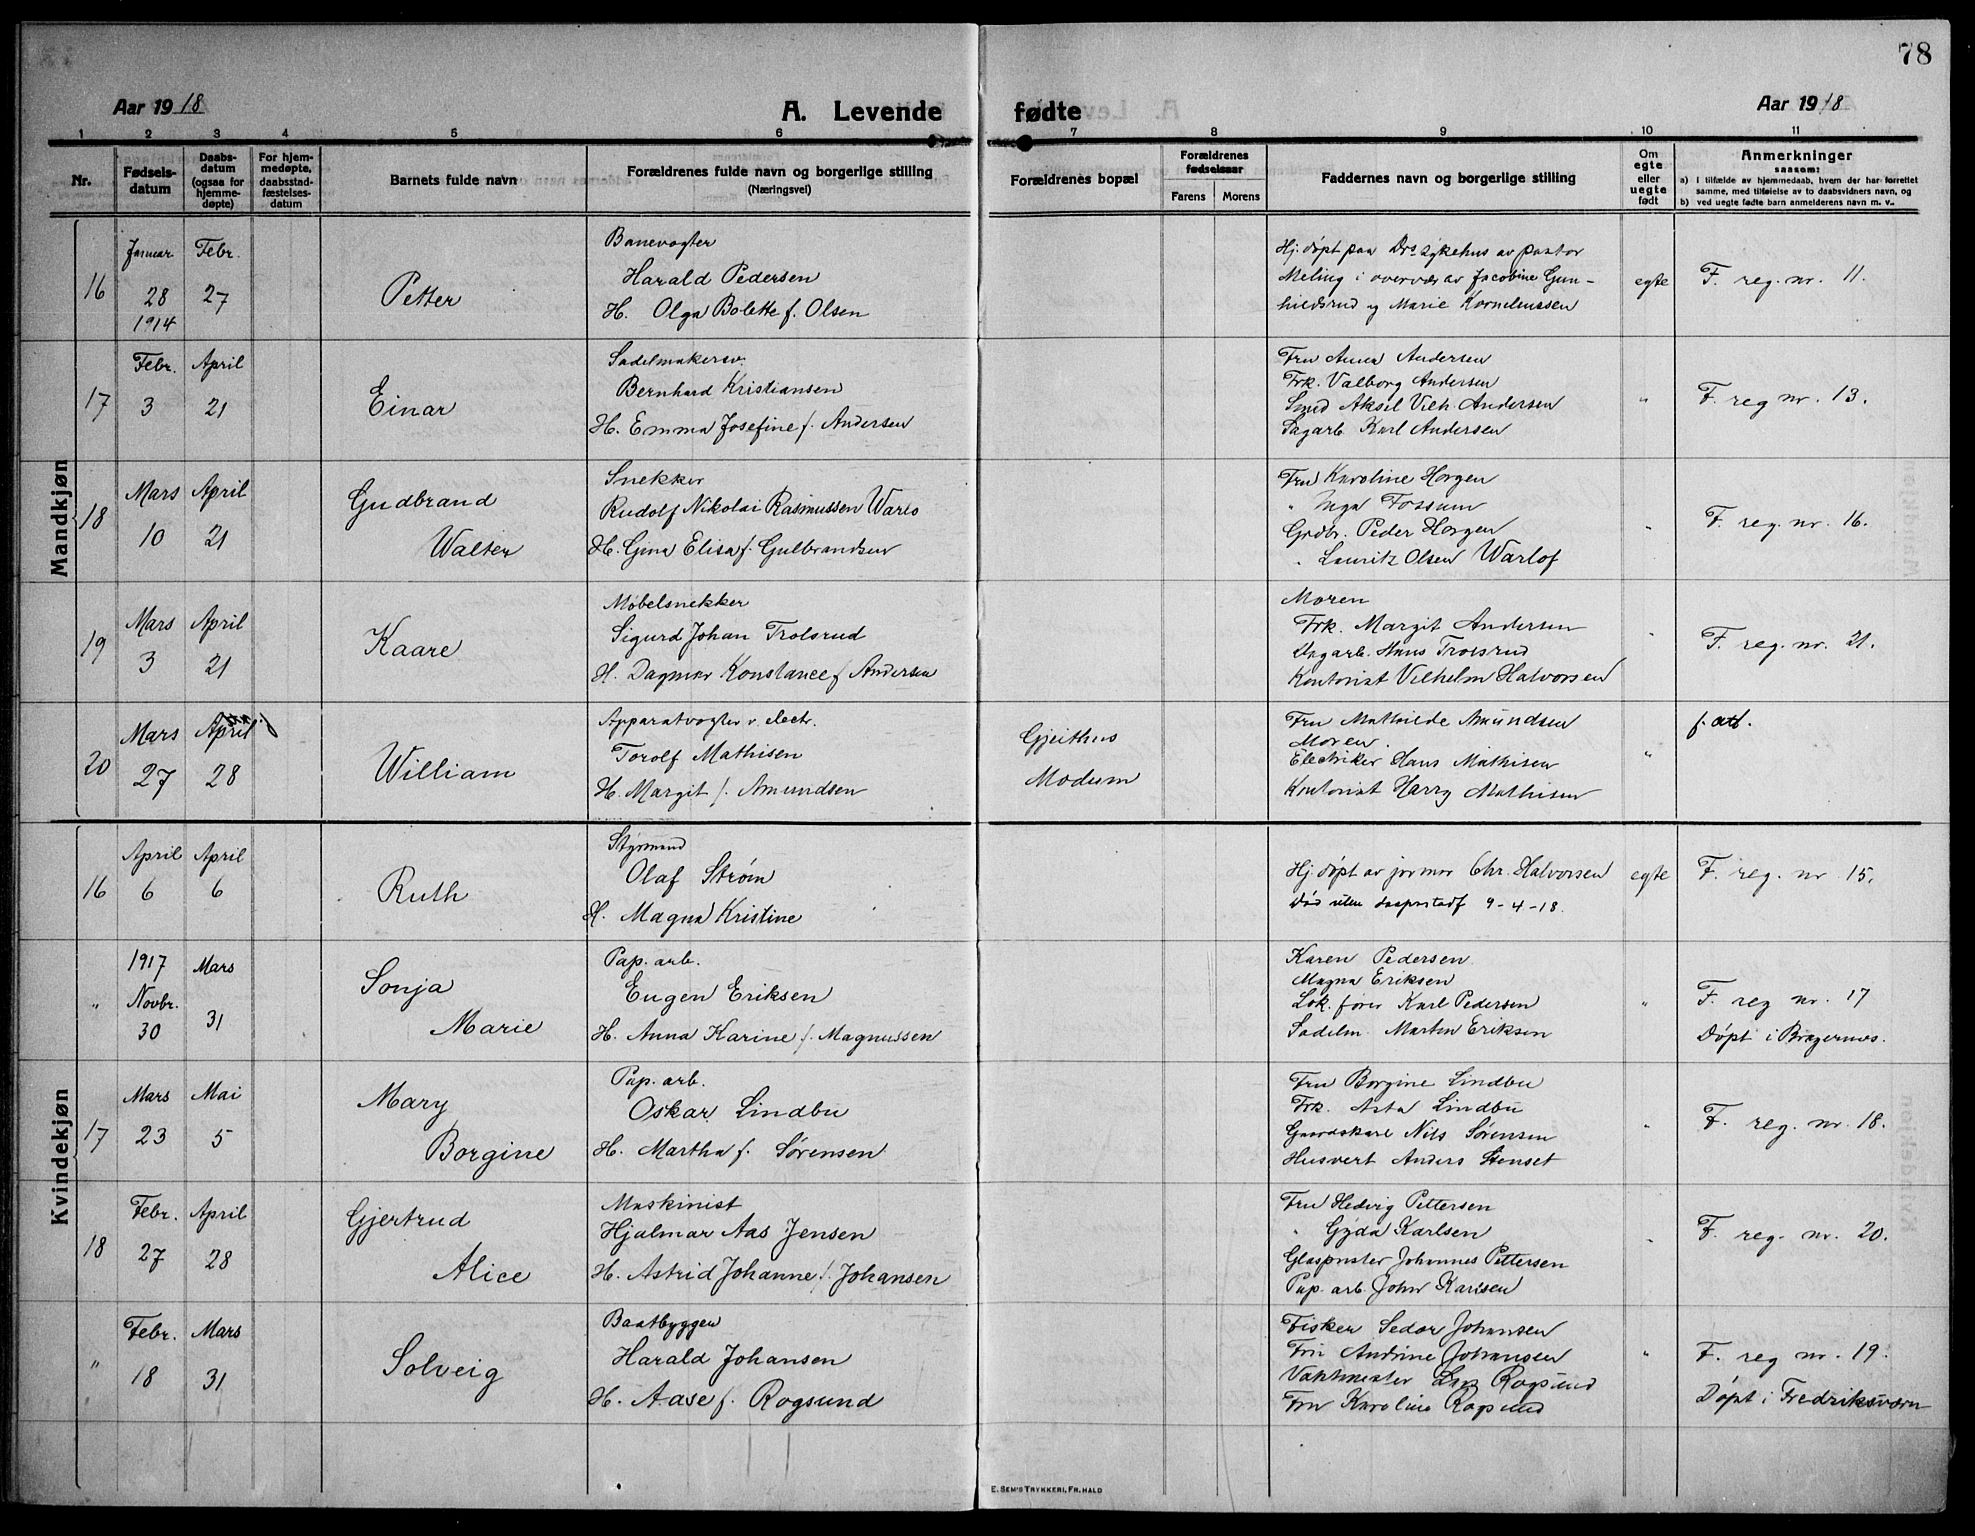 78
Aar 1918
A. Levende fødte
Aar 1918
1 2 3 4 5 6 7 8 9 10 11
Nr.
Fødsels-
datum
Daabs-
datum
(ogsaa for
hjemme-
døpte)
For hjem-
medøpte,
daabsstad-
fæstelses-
datum
Barnets fulde navn
Forældrenes fulde navn og borgerlige stilling
(Næringsvei)
Forældrenes bopæl
Forældrenes
fødselsaar
Farens Morens
Faddernes navn og borgerlige stilling
Om
egte
eller
uegte
født
Anmerkninger
saasom:
a) I tilfælde av hjemmedaab, hvem der har forrettet
samme, med tilføielse av to daabsvidners navn, og
b) ved uegte fødte barn anmelderens navn m. v.
Mandkjøn
16
Januar
28
1914
Febr.
27
Petter
Banevogter
Harald Pedersen
H. Olga Bolette f. Olsen
Hj. døpt paa Drs sykehus av pastor
Meling i overvær av Jacobine Gun-
hildsrud og Marie Korneliussen
egte
F. reg. nr. 11.
17
Febr.
3
April
21
Einar
Sadelmakersv.
Bernhard Kristiansen
H. Emma Josefine f. Andersen
Fru Anna Andersen
Frk. Valborg Andersen
Smed Aksel Vilh. Andersen
Sagarb. Karl Andersen
"
F. reg nr. 13.
18
Mars
10
April
21
Gudbrand
Walter
Snekker
Rudolf Nikolai Rasmussen Warlo
H. Gina Elisa f. Gulbrandsen
Fru Karoline Horgen
" Inga Fossum
Grdbr. Peder Horgen
" Lauritz Olsen Warlof
"
F. reg. nr. 16.
19
Mars
3
April
21
Kaare
Møbelsnekker
Sigurd Johan Trolsrud
H. Dagmar Konstance f Andersen
Moren
Frk. Margit Andersen
Dagarb. Hans Trolsrud
Kontorist Vilhelm Halvorsen
"
F. reg. nr. 21.
20
Mars
27
April
28
William
Apparatvogter v. electr.
Torolf Mathisen
H. Margit f. Amundsen
Gjeithus
Modum
Fru Mathilde Amundsen
Moren.
Electriker Hans Mathisen
Kontorist Harry Mathisen
"
f. att.
Kvindekjøn
16
April
6
April
6
Ruth
Styrmand
Olaf Strøm
H. Magna Kristine
Hj. døpt av jormor Chr. Halvorsen
Død uten daapsstadf 9-4-18.
egte
F. reg. nr 15.
"
1917
Novbr.
30
Mars
31
Sonja
Marie
Pap. arb.
Eugen Eriksen
H. Anna Karine f. Magnussen
Karen Pedersen
Magna Eriksen
Lok. fører Karl Pedersen
Sadelm. Martin Eriksen
"
F. reg nr. 17
Døpt i Bragernes.
17
Mars
23
Mai
5
Mary
Borgine
Pap. arb.
Oskar Lindbu
H. Martha f. Sørensen
Fru Borgine Lindbu
Frk. Asta Lindbu
Gaardskarl Nils Sørensen
Husvert Anders Stenset
"
F. reg. nr. 18.
18
Febr.
27
April
28
Gjertrud
Alice
Maskinist
Hjalmar Aas Jensen
H. Astrid Johanne f. Johansen
Fru Hedvig Pettersen
" Gyda Karlsen
Glaspuster Johannes Pettersen
Pap. arb. John Karlsen
"
F. reg. nr. 20.
"
Febr.
18
Mars
31
Solveig
Baatbygger
Harald Johansen
H. Aase f. Rogsund
Fisker Sedor Johansen
Fru Andrine Johansen
Vaktmester Lars Rogsund
Fru Karoline Rogsund
"
F. reg nr. 19.
Døpt i Fredriksværn
E. SEM'S TRYKKERI, FR. HALD